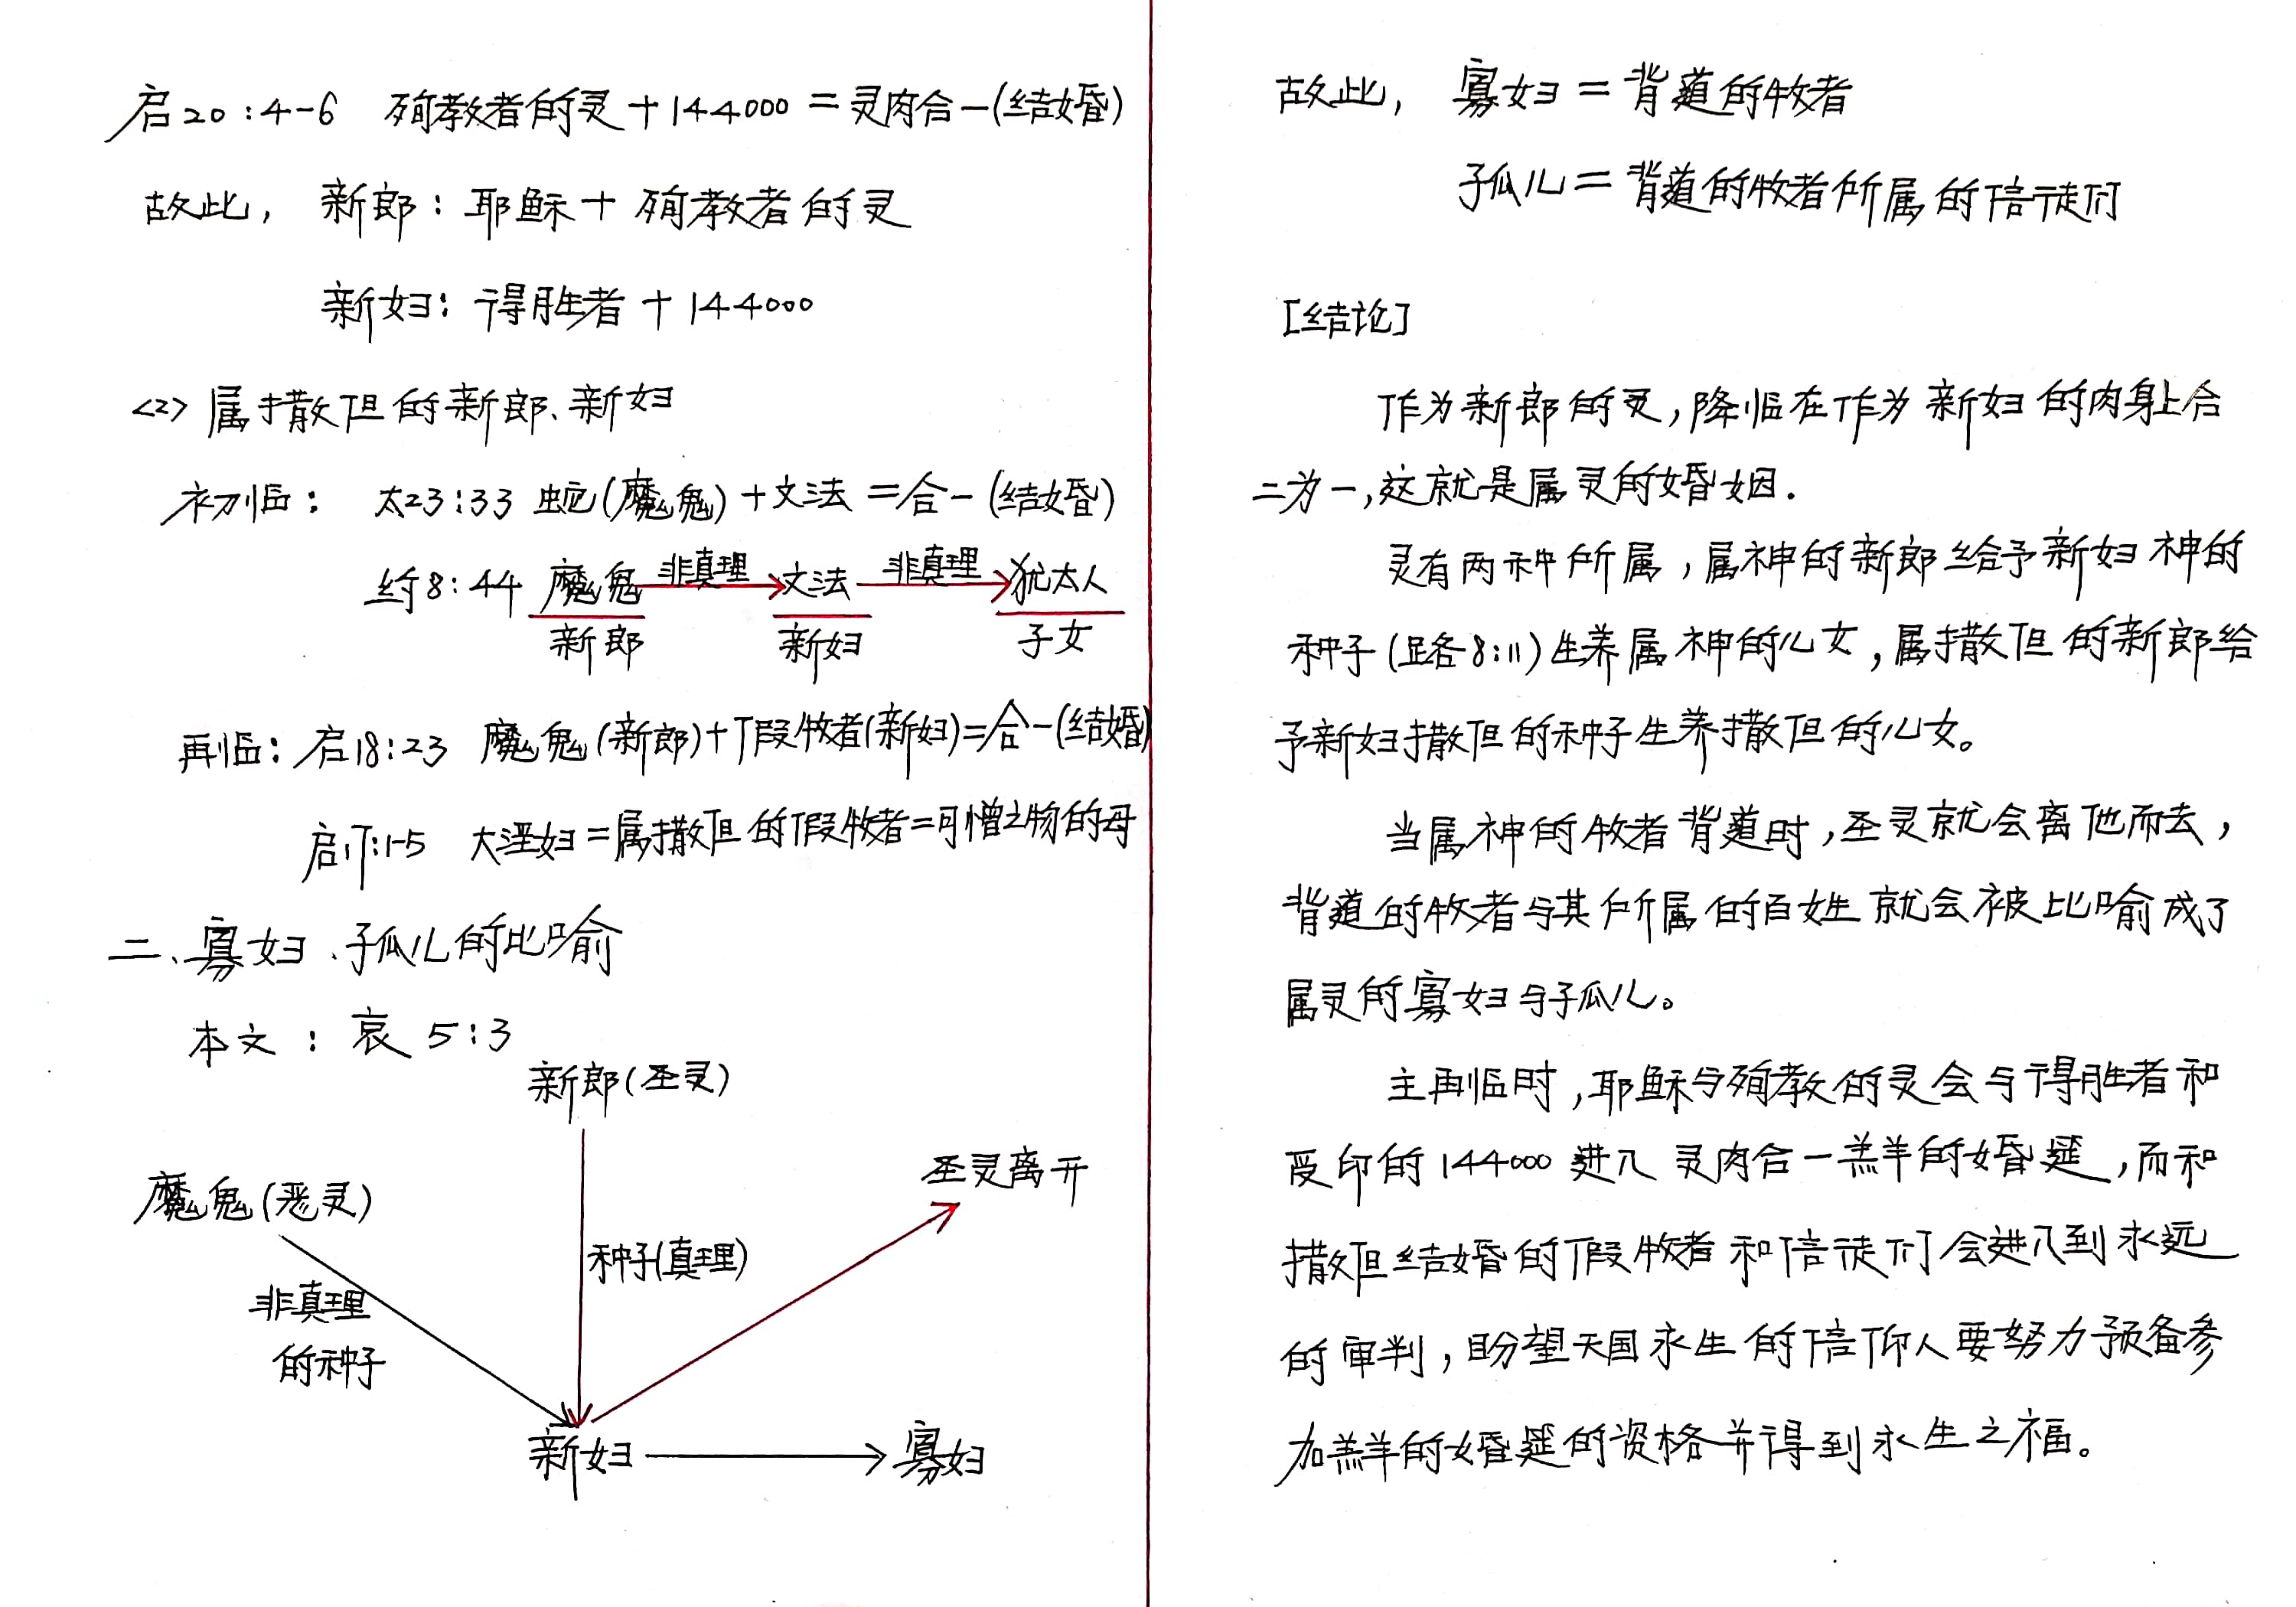 启20:4-6 殉教者的灵+144000=灵肉合一(结婚)
故此, 新郎:耶稣+殉教者的灵
新妇:得胜者+144000
<2>属撒但的新郎、新妇
初临: 太23:33 蛇(魔鬼)+文法=合一(结婚)
约8:44 魔鬼 非真理 文法 非真理 犹太人
新郎 新妇 子女
再临:启18:23 魔鬼(新郎)+假牧者(新妇)=合一(结婚)
启17:1-5 大淫妇=属撒但的假牧者=可憎之物的母
二、寡妇、孤儿的比喻
本文:哀5:3
新郎(圣灵)
魔鬼(恶灵)
圣灵离开
种子(真理)
非真理
的种子
新妇
寡妇
故此, 寡妇=背道的牧者
孤儿=背道的牧者所属的信徒们
[结论]
作为新郎的灵,降临在作为新妇的肉身上合
二为一,这就是属灵的婚姻.
灵有两种所属,属神的新郎给予新妇神的
种子(路8:11)生养属神的儿女,属撒但的新郎给
予新妇撒但的种子生养撒但的儿女。
当属神的牧者背道时,圣灵就会离他而去,
背道的牧者与其所属的百姓就会被比喻成了
属灵的寡妇与孤儿。
主再临时,耶稣与殉教的灵会与得胜者和
受印的144000进入灵肉合一羔羊的婚筵,而和
撒但结婚的假牧者和信徒们会进入到永远
的审判,盼望天国永生的信仰人要努力预备参
加羔羊的婚筵的资格并得到永生之福。